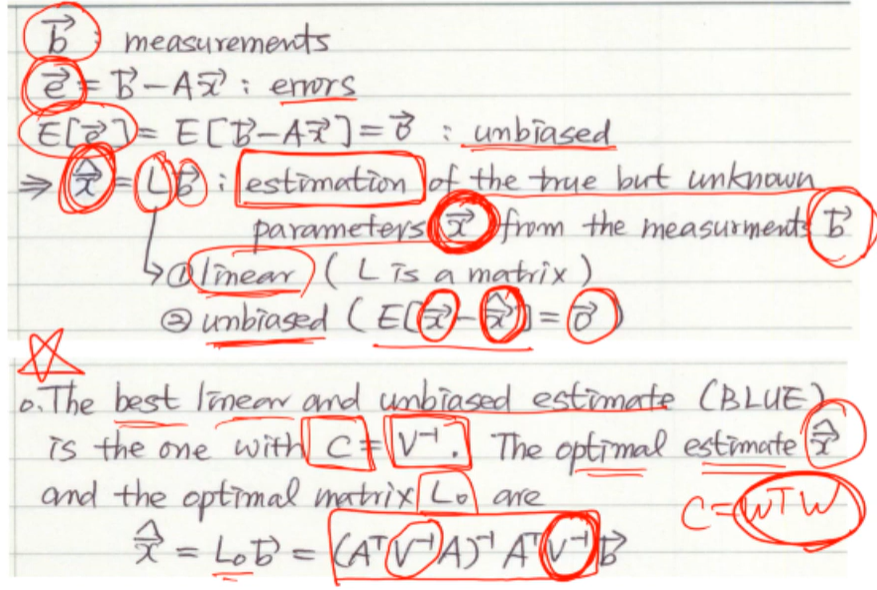 b⃗ : measurements
e⃗ = b⃗ - Ax⃗ : errors
E[e⃗] = E[b⃗ - Ax⃗] = 0⃗ : unbiased
⇒ x̂⃗ = Lb⃗ : estimation of the true but unknown
parameters x⃗ from the measurments b⃗
↳ ① linear ( L is a matrix )
② unbiased ( E[x⃗ - x̂⃗] = 0⃗ )
☆
o. The best linear and unbiased estimate (BLUE)
is the one with C = V⁻¹. The optimal estimate x̂⃗
and the optimal matrix L₀ are
C = WᵀW
x̂⃗ = L₀b⃗ = (AᵀV⁻¹A)⁻¹AᵀV⁻¹b⃗